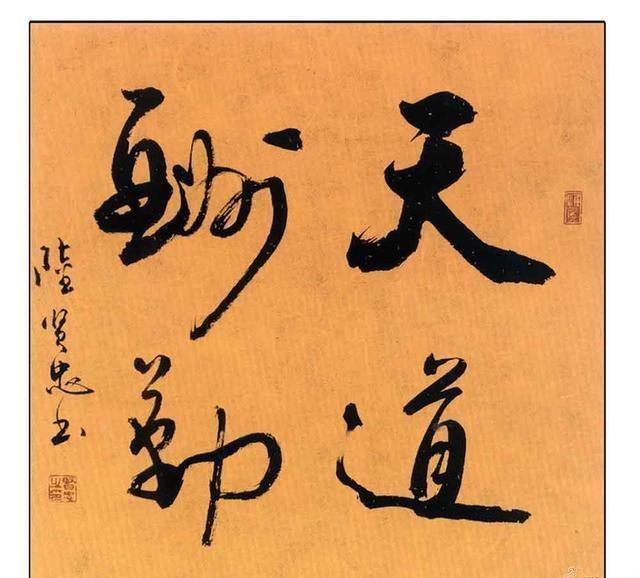 天道
酬勤
陸贤忠书